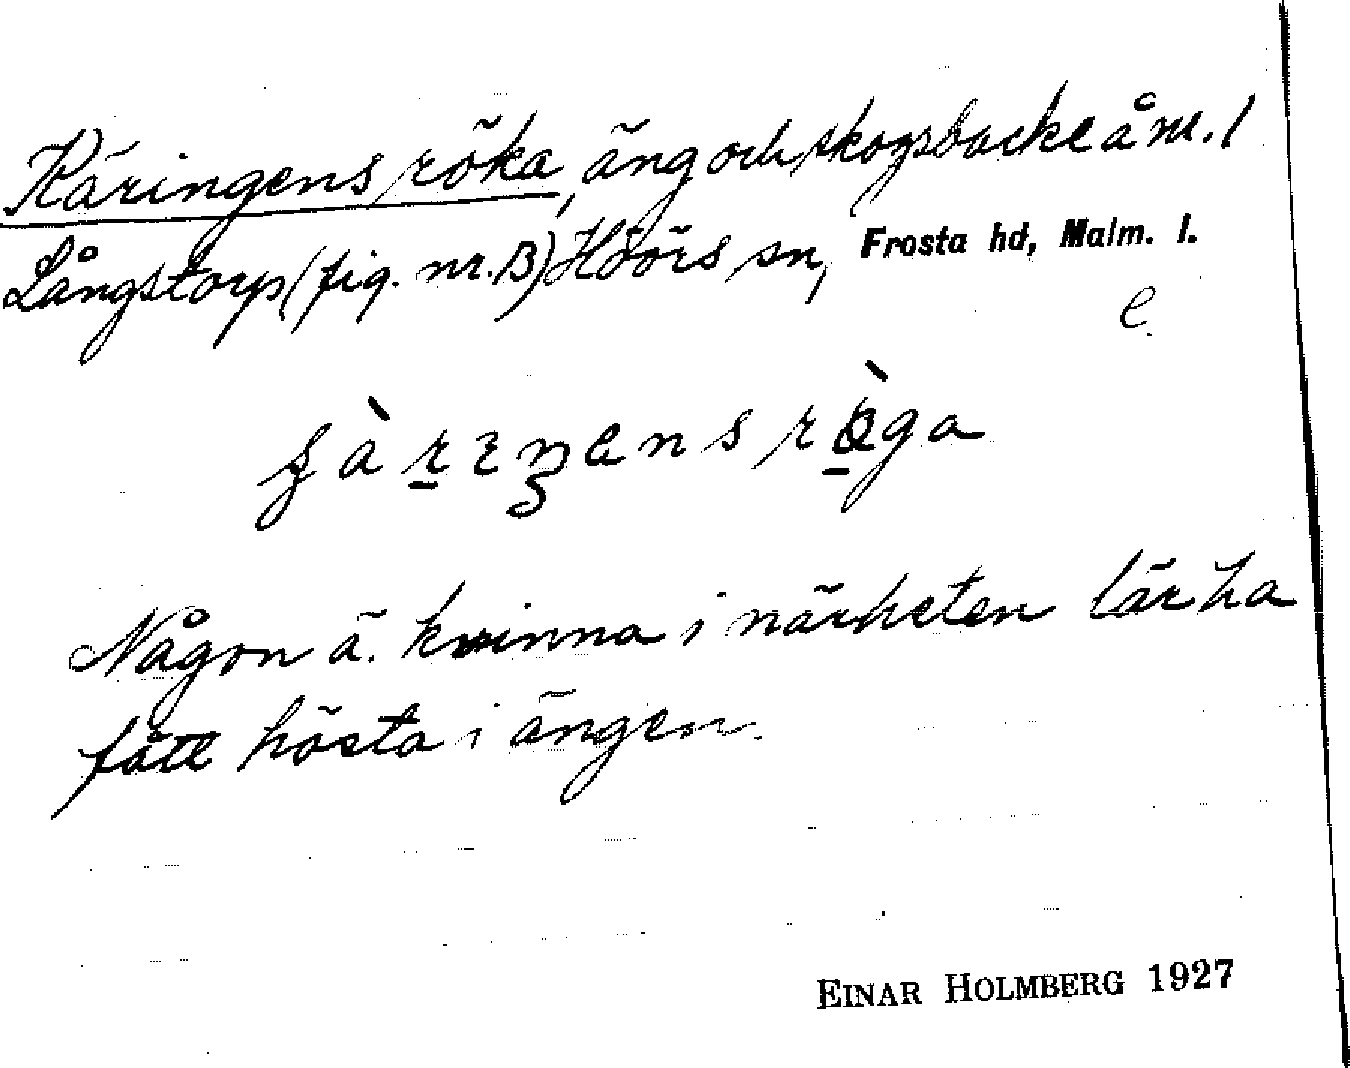 Käringens röka, äng och skogsbacke å nr. 1
Långstorp (fig. nr. B) Höörs sn, Frosta hd, Malm. l.
e
Någon ä. kvinna i närheten lär ha
fått hösta i ängen.
EINAR HOLMBERG 1927